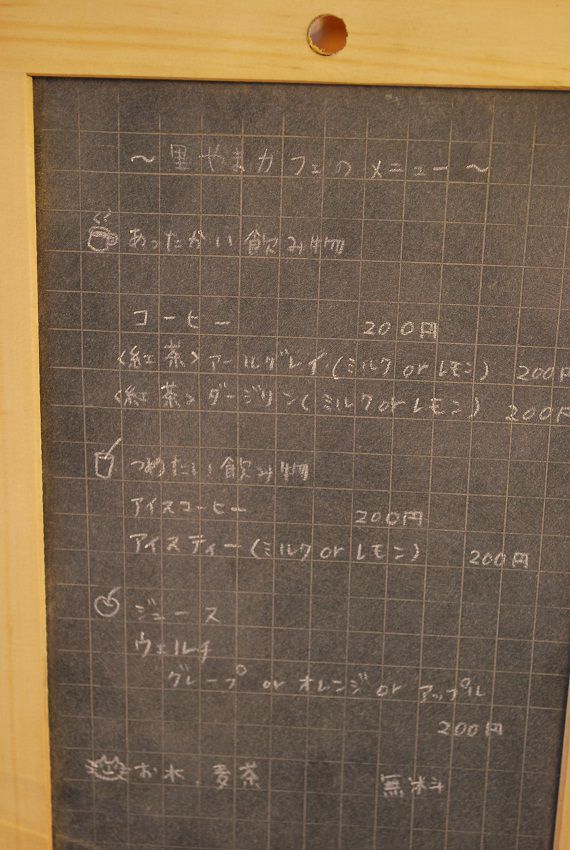 ～里やまカフェのメニュー～
あったかい飲み物
コーヒー 200円
<紅茶>アールグレイ(ミルク or レモン) 200円
<紅茶>ダージリン(ミルク or レモン) 200円
つめたい飲み物
アイスコーヒー 200円
アイスティー(ミルク or レモン) 200円
ジュース
ウェルチ
グレープ or オレンジ or アップル
200円
お水、麦茶 無料